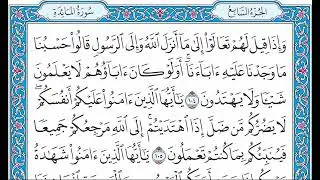 الجزء السابع
سورة المائدة
وَإِذَا قِيلَ لَهُمْ تَعَالَوْا۟ إِلَىٰ مَآ أَنزَلَ ٱللَّهُ وَإِلَى ٱلرَّسُولِ قَالُوا۟ حَسْبُنَا
مَا وَجَدْنَا عَلَيْهِ ءَابَآءَنَآ أَوَلَوْ كَانَ ءَابَآؤُهُمْ لَا يَعْلَمُونَ
شَيْـًٔا وَلَا يَهْتَدُونَ ١٠٤ يَـٰٓأَيُّهَا ٱلَّذِينَ ءَامَنُوا۟ عَلَيْكُمْ أَنفُسَكُمْ
لَا يَضُرُّكُم مَّن ضَلَّ إِذَا ٱهْتَدَيْتُمْ إِلَى ٱللَّهِ مَرْجِعُكُمْ جَمِيعًا
فَيُنَبِّئُكُم بِمَا كُنتُمْ تَعْمَلُونَ ١٠٥ يَـٰٓأَيُّهَا ٱلَّذِينَ ءَامَنُوا۟ شَهَـٰدَةُ